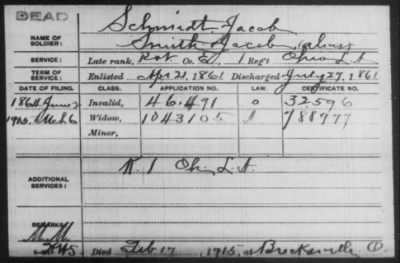 DEAD
NAME OF SOLDIER: Schmidt Jacob
Smith Jacob (alias)
SERVICE: Late rank, Pvt Co. E, 1 Reg't Ohio L A
TERM OF SERVICE: Enlisted Apr 21, 1861 Discharged July 27, 1861
DATE OF FILING. CLASS. APPLICATION NO. LAW. CERTIFICATE NO.
1864 June 2 Invalid, 46.491 o 32596
1915 Mch 6 Widow, 1043105 788977
Minor,
ADDITIONAL SERVICES: K. 1 Oh. L. A.
REMARKS:
Died Feb 17, 1915, at Brecksville O.